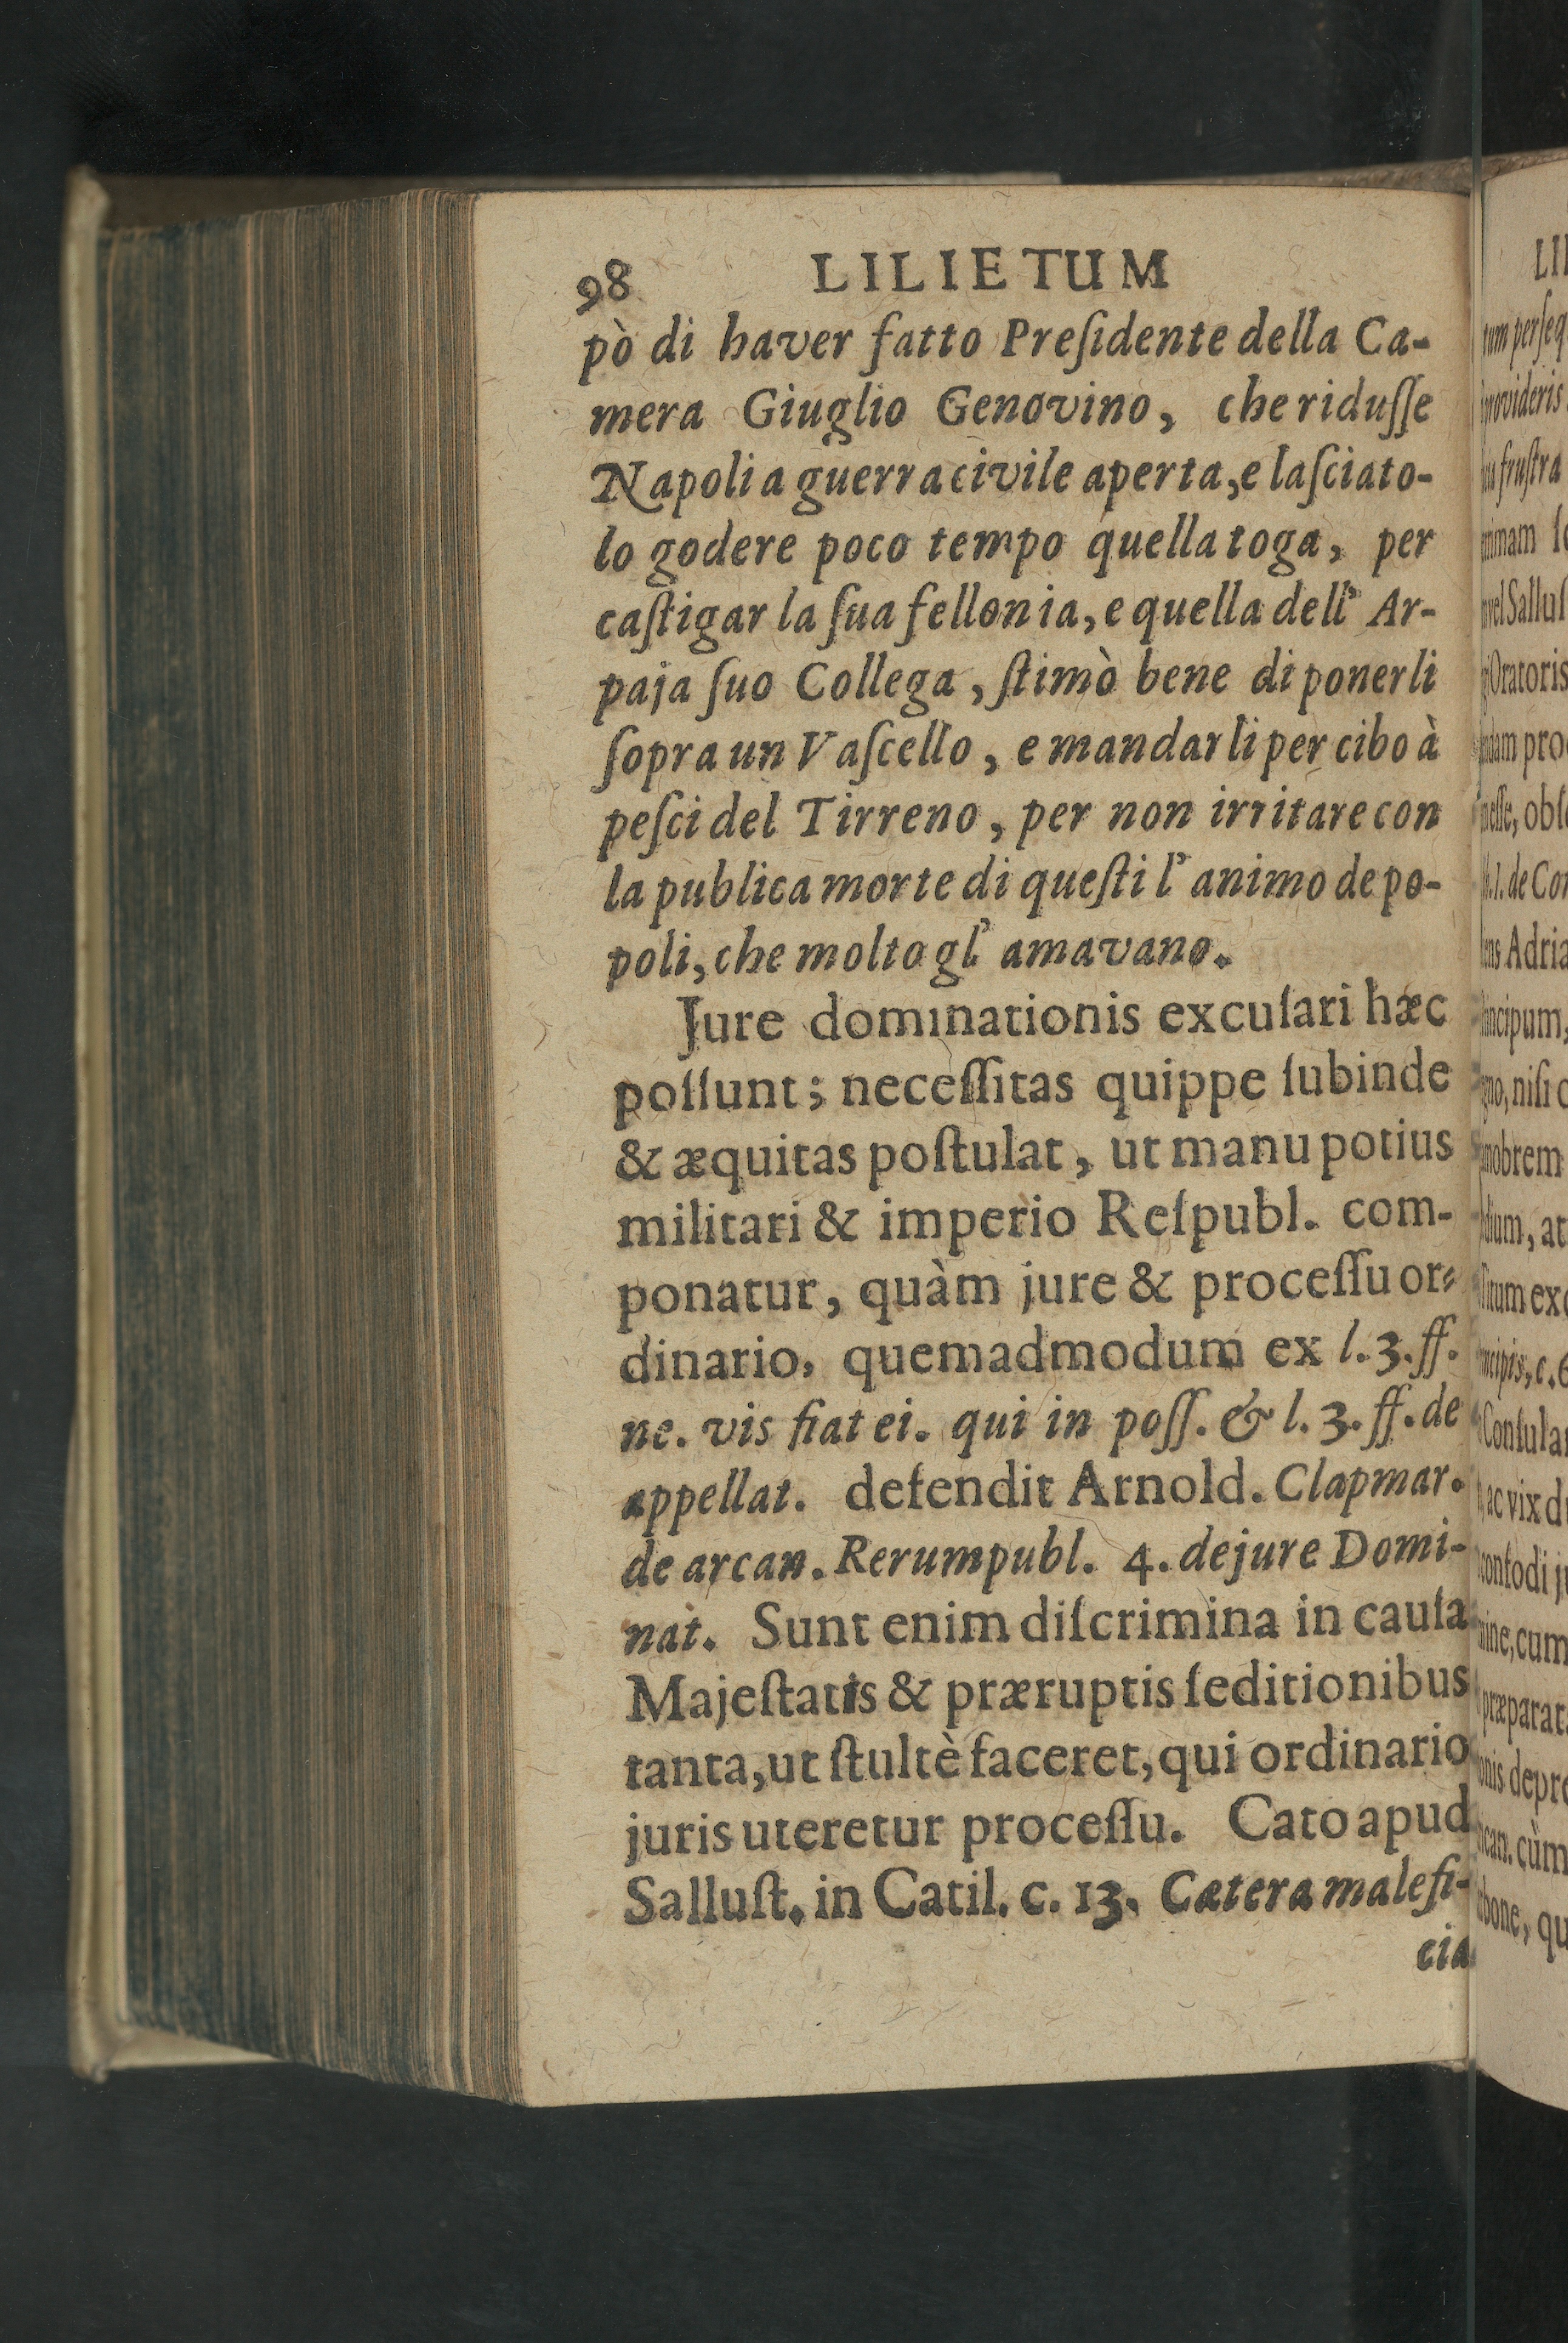 98 LILIETUM
pò di haver fatto Preſidente della Ca-
mera Giuglio Genovino, che riduſſe
Napoli a guerra civile aperta, e laſciato-
lo godere poco tempo quella toga, per
caſtigar la ſua fellonia, e quella dell' Ar-
paja ſuo Collega, ſtimò bene di ponerli
ſopra un Vaſcello, e mandarli per cibo à
peſci del Tirreno, per non irritare con
la publica morte di queſti l' animo de po-
poli, che molto gl' amavano.
Jure dominationis excuſari hæc
poſſunt; neceſſitas quippe ſubinde
& æquitas poſtulat, ut manu potius
militari & imperio Reſpubl. com-
ponatur, quàm jure & proceſſu or-
dinario, quemadmodum ex l. 3. ff.
ne. vis fiat ei. qui in poſſ. & l. 3. ff. de
appellat. defendit Arnold. Clapmar.
de arcan. Rerumpubl. 4. de jure Domi-
nat. Sunt enim diſcrimina in cauſa
Majeſtatis & præruptis ſeditionibus
tanta, ut ſtultè faceret, qui ordinario
juris uteretur proceſſu. Cato apud
Salluſt. in Catil. c. 13. Cætera malefi-
cia
LI
tum perſeq
provideris
fruſtra
vel Salluſ
Oratoris
dam pro
eſſe, obſ
l. de Con
Adria
ncipum,
no, niſi
mobrem
dium, at
tum ex
ncipis, c. 6
Conſula
ac vix d
ine, cum
præparat
nis depr
can. cùm
bone, qu